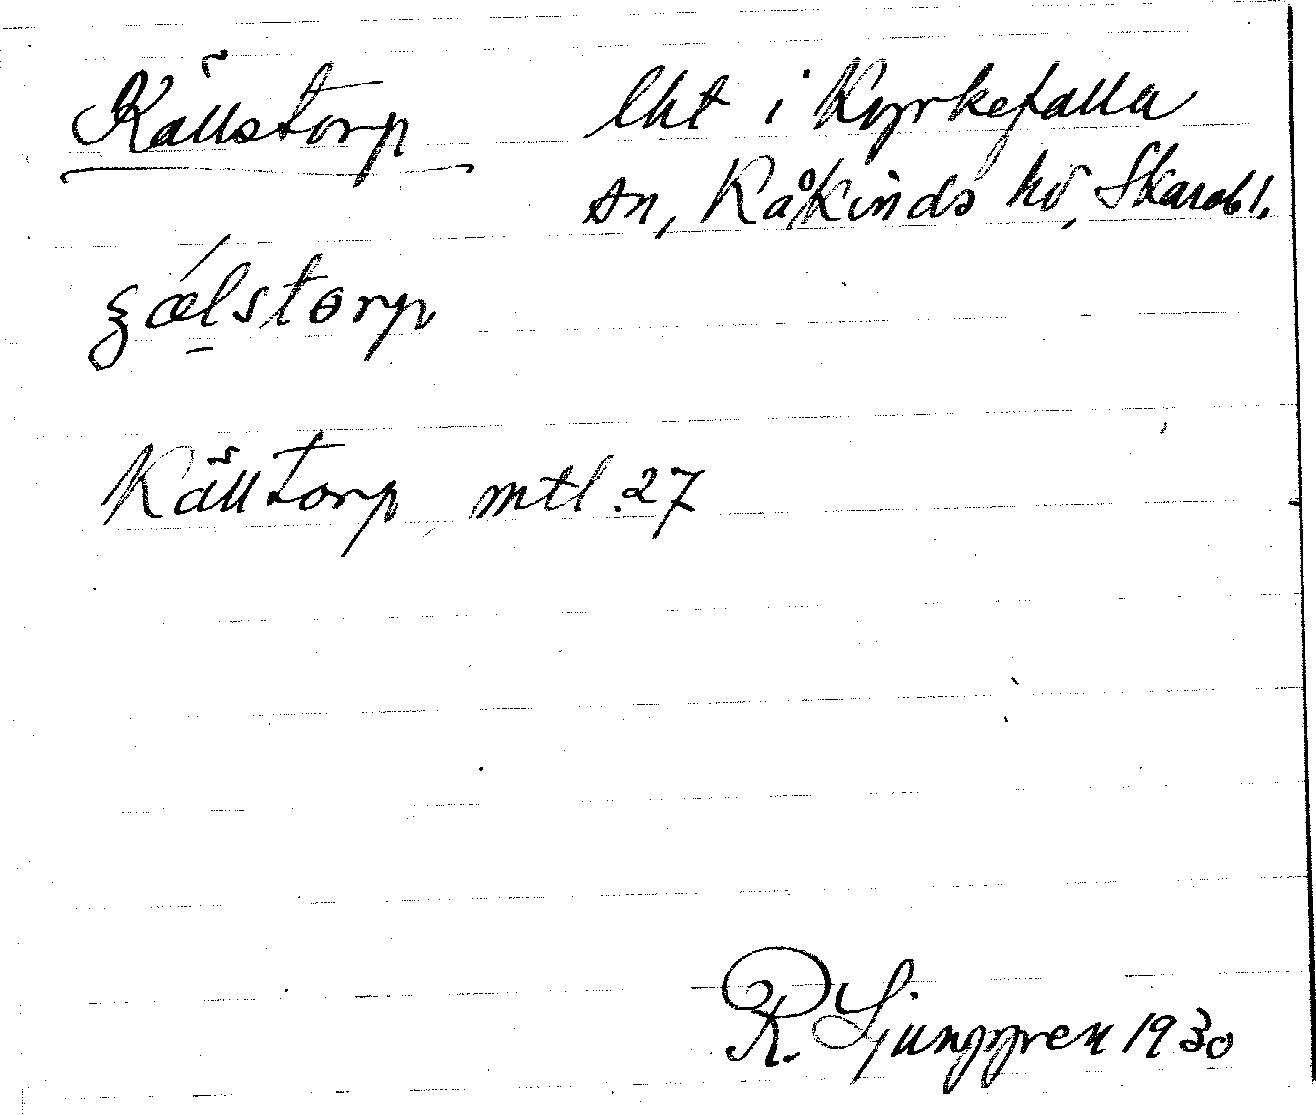 Källstorp lht i Kyrkefalla
sn, Kåkinds hd, Skarab l.
ʒælstorp
Källtorp mtl. 27
R. Ljunggren 1930